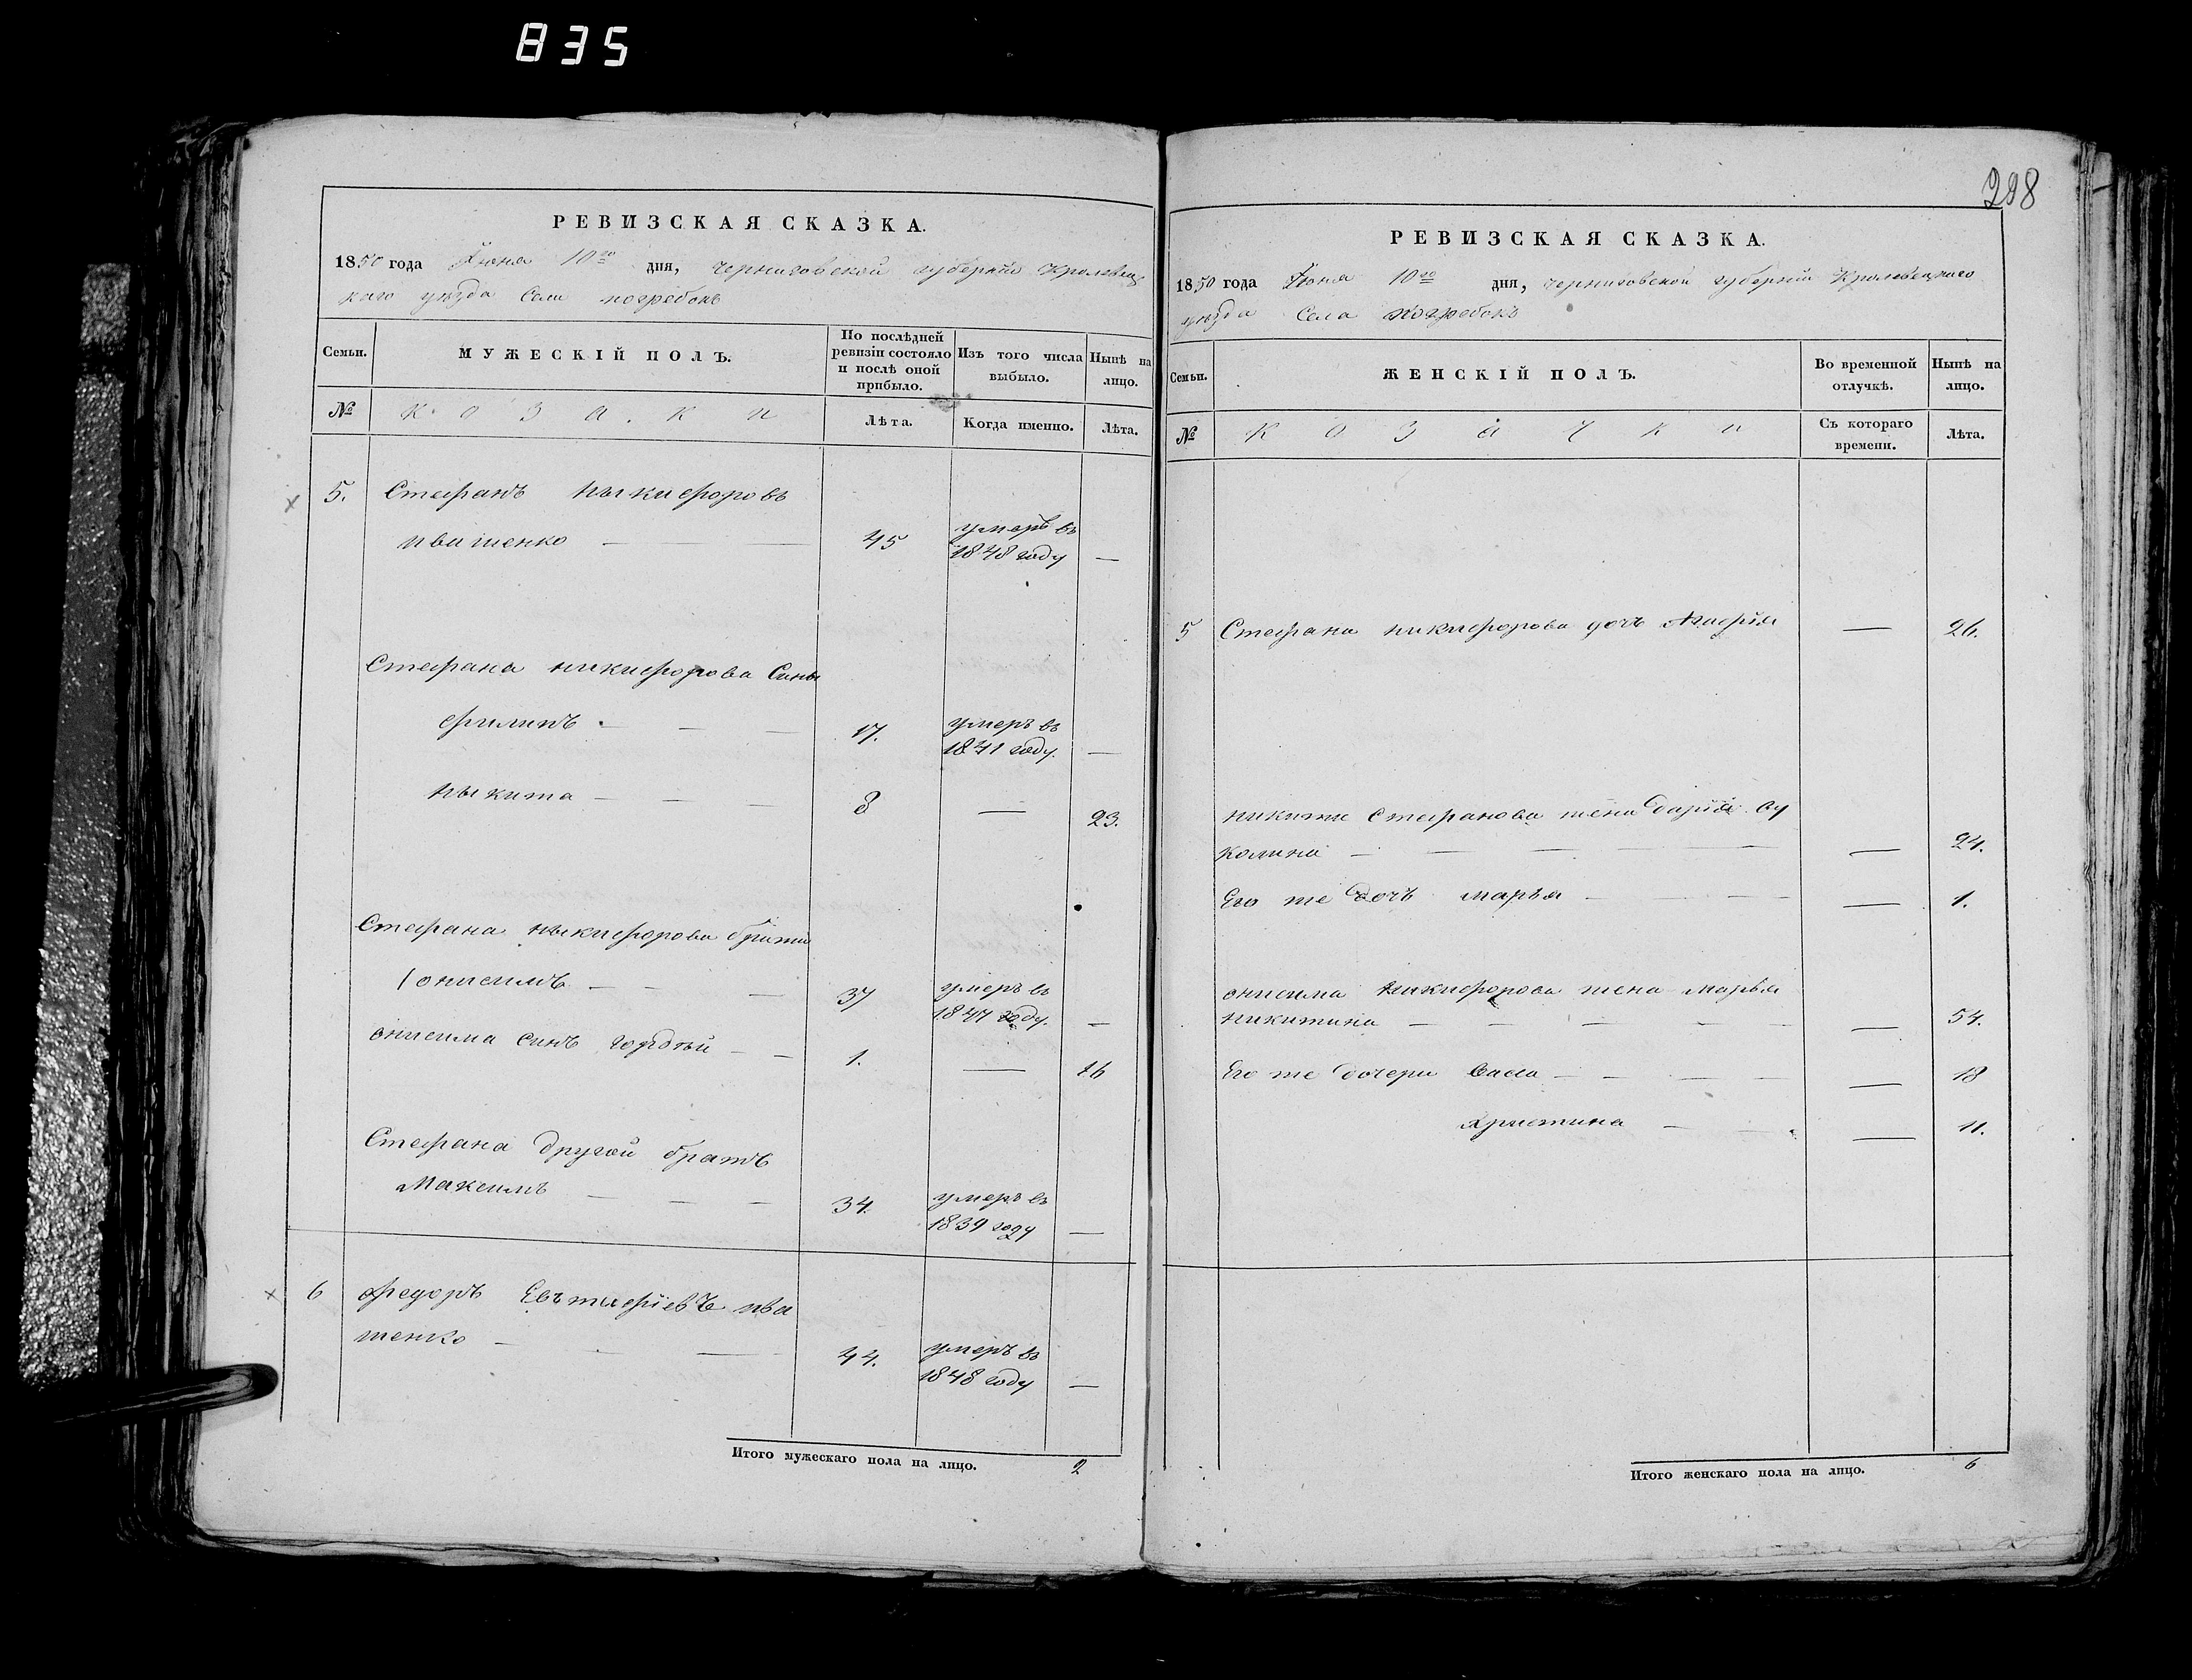 835
298
РЕВИЗСКАЯ СКАЗКА.
1850 года Июня 10го дня, черниговской губерніи Кролевец
каго уѣзда Села погребокъ
Семьи.
МУЖЕСКІЙ ПОЛЪ.
По послѣдней
ревизіи состояло
и послѣ оной
прибыло.
Изъ того числа
выбыло.
Нынѣ на
лицо.
№
козаки
Лѣта.
Когда именно.
Лѣта.
5. Стефанъ ныкифоровъ
ивашенко 45 умеръ въ
1848 году —
Стефана никифорова Сины
филипъ 17. умеръ въ
1841 году. —
ныкита 8 — 23.
Стефана ныкифорова братъ
онисимъ 37 умеръ въ
1847 году. —
онисима синъ гордѣй 1. — 16
Стефана другой братъ
Максимъ 34. умеръ въ
1839 году —
6 Федоръ Евътифіевъ ива
шенко 44. умеръ въ
1848 году —
Итого мужескаго пола на лицо. 2
РЕВИЗСКАЯ СКАЗКА.
1850 года Июня 10го дня, черниговской губерніи Кролевецкаго
уѣзда Села погребокъ
Семьи.
ЖЕНСКІЙ ПОЛЪ.
Во временной
отлучкѣ.
Нынѣ на
лицо.
№
козачки
Съ котораго
времени.
Лѣта.
5 Стефана никифорова дочь — 26.
никиты Стефанова жена Дарія ву
колина — 24.
Его же дочь марья — 1.
онисима никифорова жена марья
никитина — 54.
Его же дочери Васса — 18
христина — 11.
Итого женскаго пола на лицо. 6